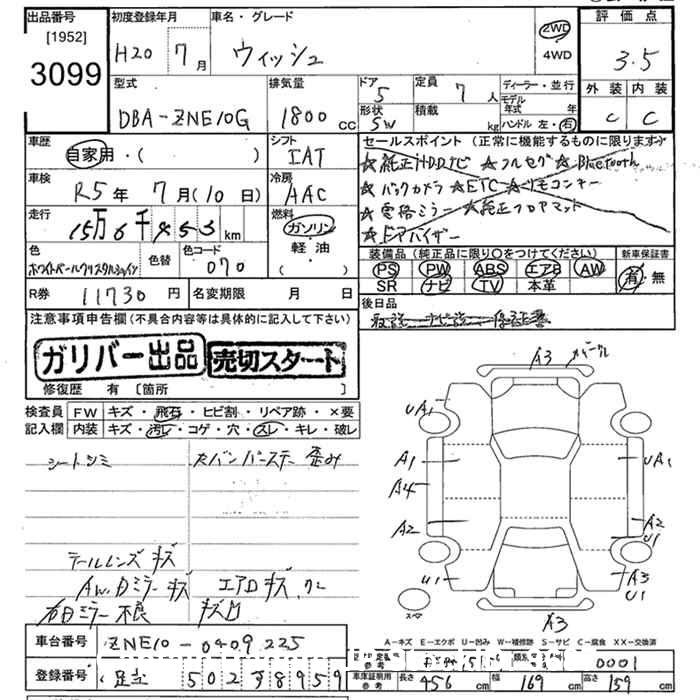 出品番号
[1952]
3099
初度登録年月
H20 7月
車名・グレード
ウィッシュ
2WD
4WD
評価点
3.5
外装 内装
C C
型式
DBA-ZNE10G
排気量
1800 cc
ドア
5
定員
7 人
形状
SW
積載
kg
ディーラー・並行
モデル年式 年
ハンドル 左・右
車歴
自家用・( )
シフト
IAT
車検
R5年 7月(10日)
冷房
AAC
走行
15万6千453 km
燃料
ガソリン
軽・油
( )
色
ホワイトパールクリスタルシャイン
色替
色コード
070
R券 11730 円
名変期限 月 日
セールスポイント (正常に機能するものに限ります)
★純正HDDナビ ★フルセグ ★Bluetooth
★バックカメラ ★ETC ★リモコンキー
★電格ミラー ★純正フロアマット
★ドアバイザー
装備品 (純正品に限り○をつけてください)
新車保証書
PS PW ABS エアB AW
SR ナビ TV 本革
有・無
後日品
取説 ナビ説 保証書
注意事項申告欄 (不具合内容等は具体的に記入して下さい)
ガリバー出品
売切スタート
修復歴 有 〔箇所 〕
検査員
記入欄
FW キズ・飛石・ヒビ割・リペア跡・×要
内装 キズ・汚レ・コゲ・穴・スレ・キレ・破レ
シートシミ
歪み
テールレンズ キズ
AW.Dミラー キズ
エアロ キズ、ワレ
右Dミラー 不良
キズ凹
A3
UA1
A1
A4
A2
U1
スペア
UA1
A2
U1
A3
U1
A3
A-キズ E-エクボ U-凹み W-補修跡 S-サビ C-腐食 XX-交換済
車台番号 ZNE10-0409225
登録番号 足立 502 8959
参考
0001
車検証明用
参考
長さ 456 cm
幅 169 cm
高さ 159 cm